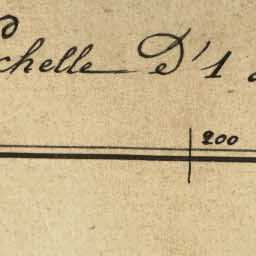 Echelle D'1
200